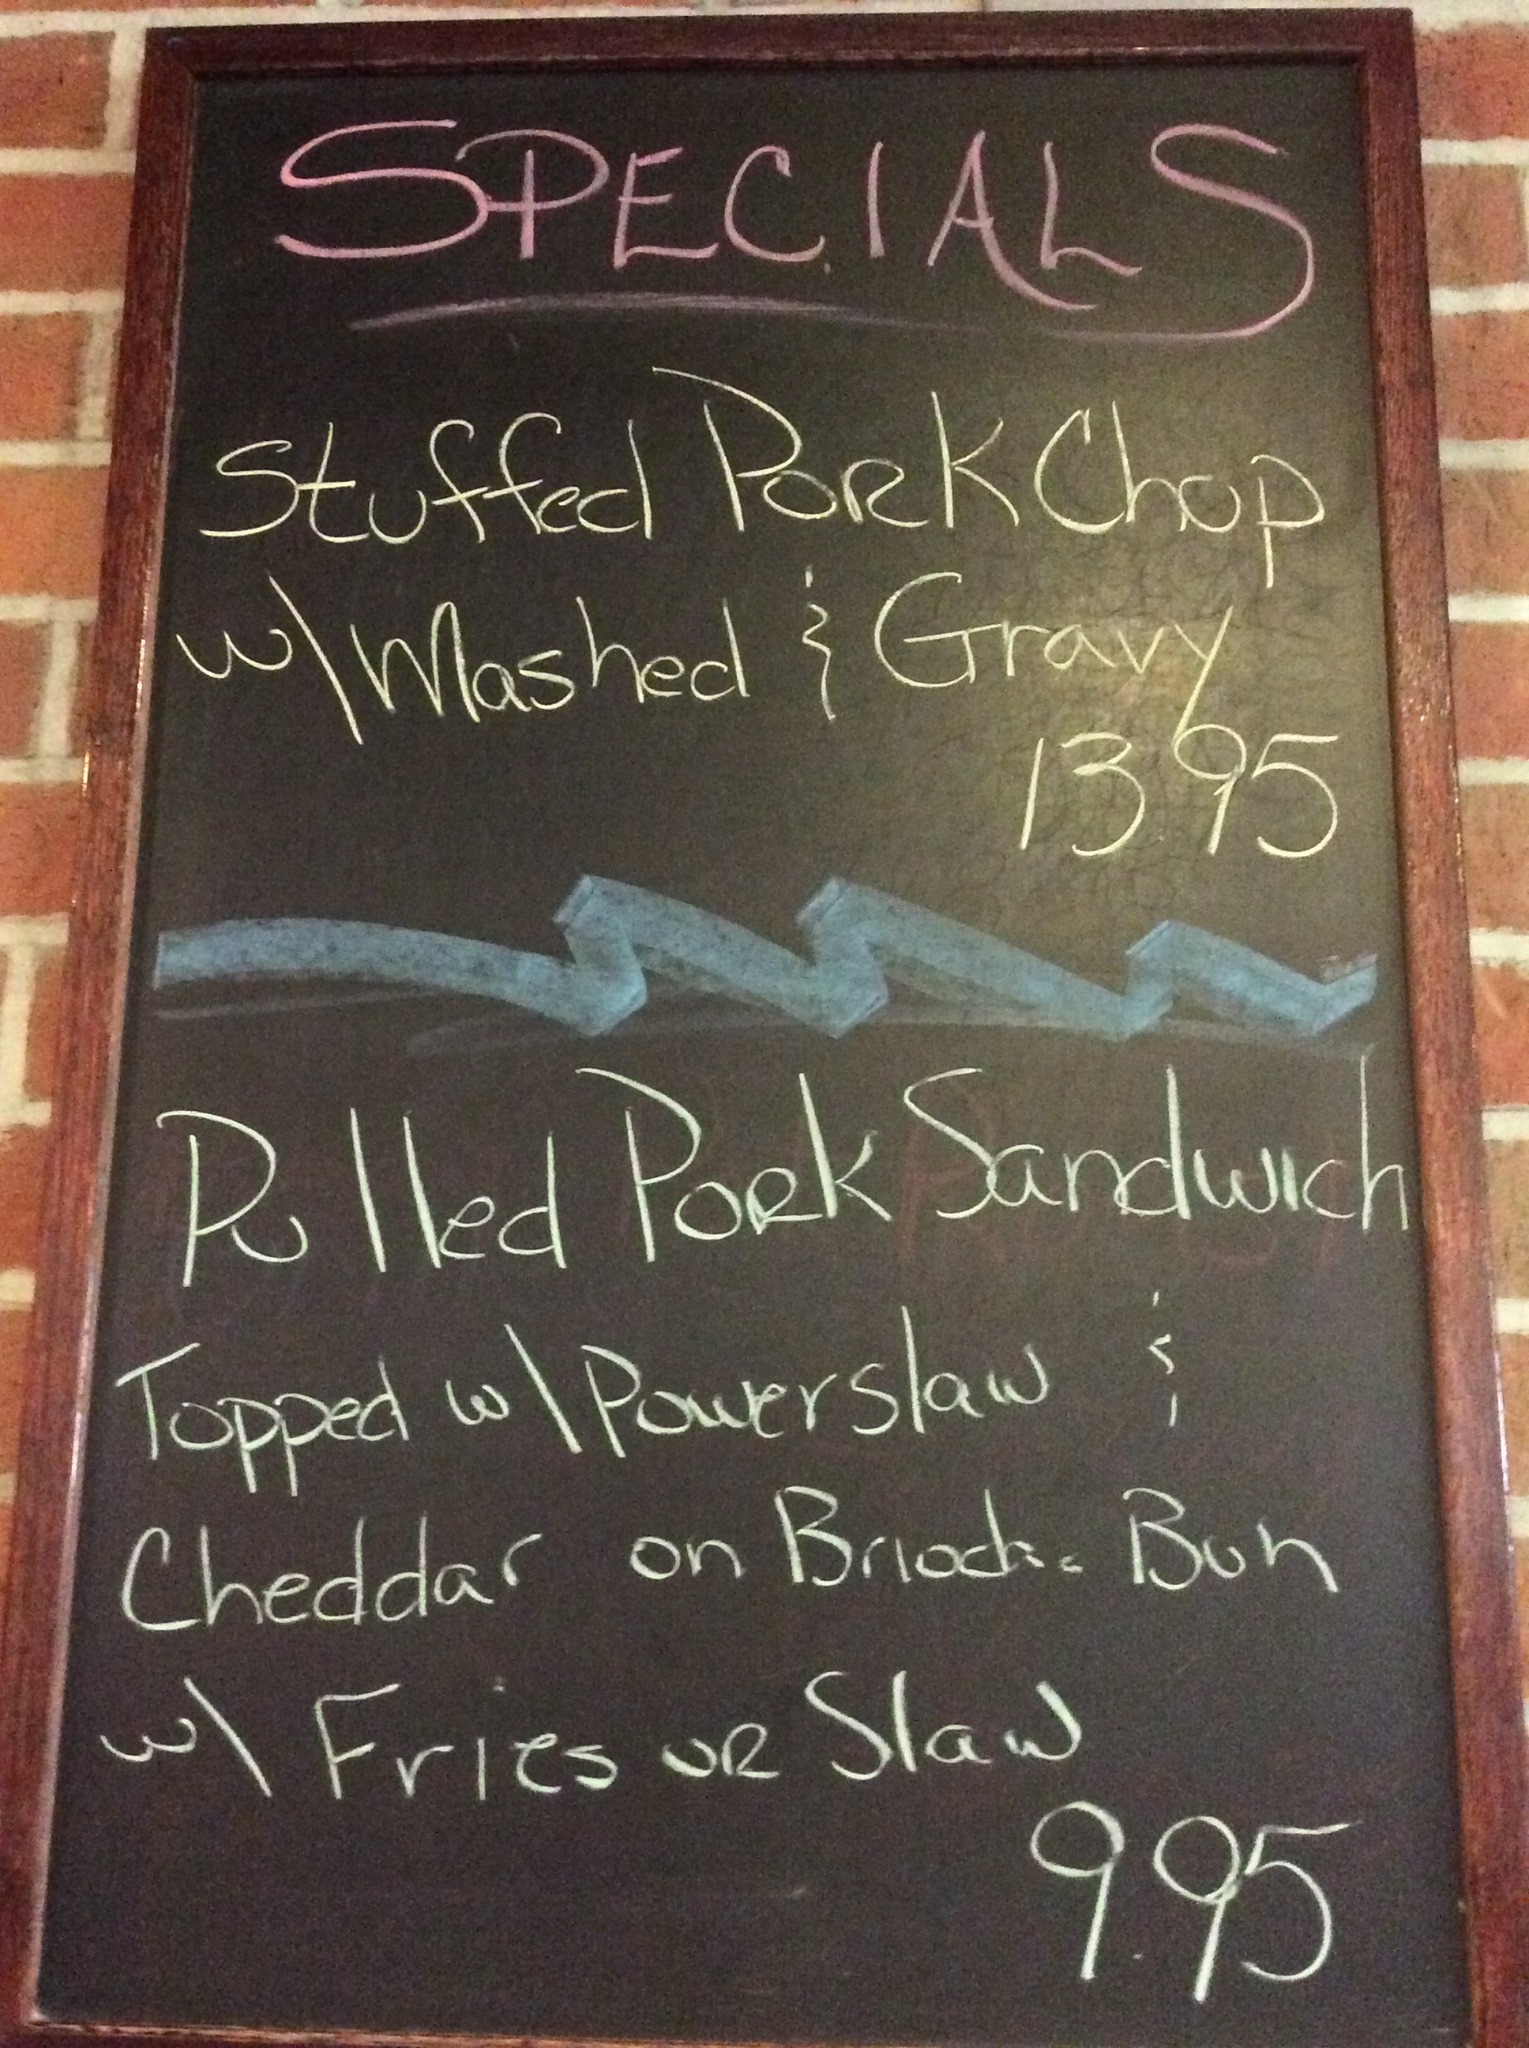 SPECIALS
Stuffed Pork Chop
w\ Mashed & Gravy
13.95
Pulled Pork Sandwich
Topped w\ Powerslaw &
Cheddar on Brioche Bun
w\ Fries or Slaw
9.95